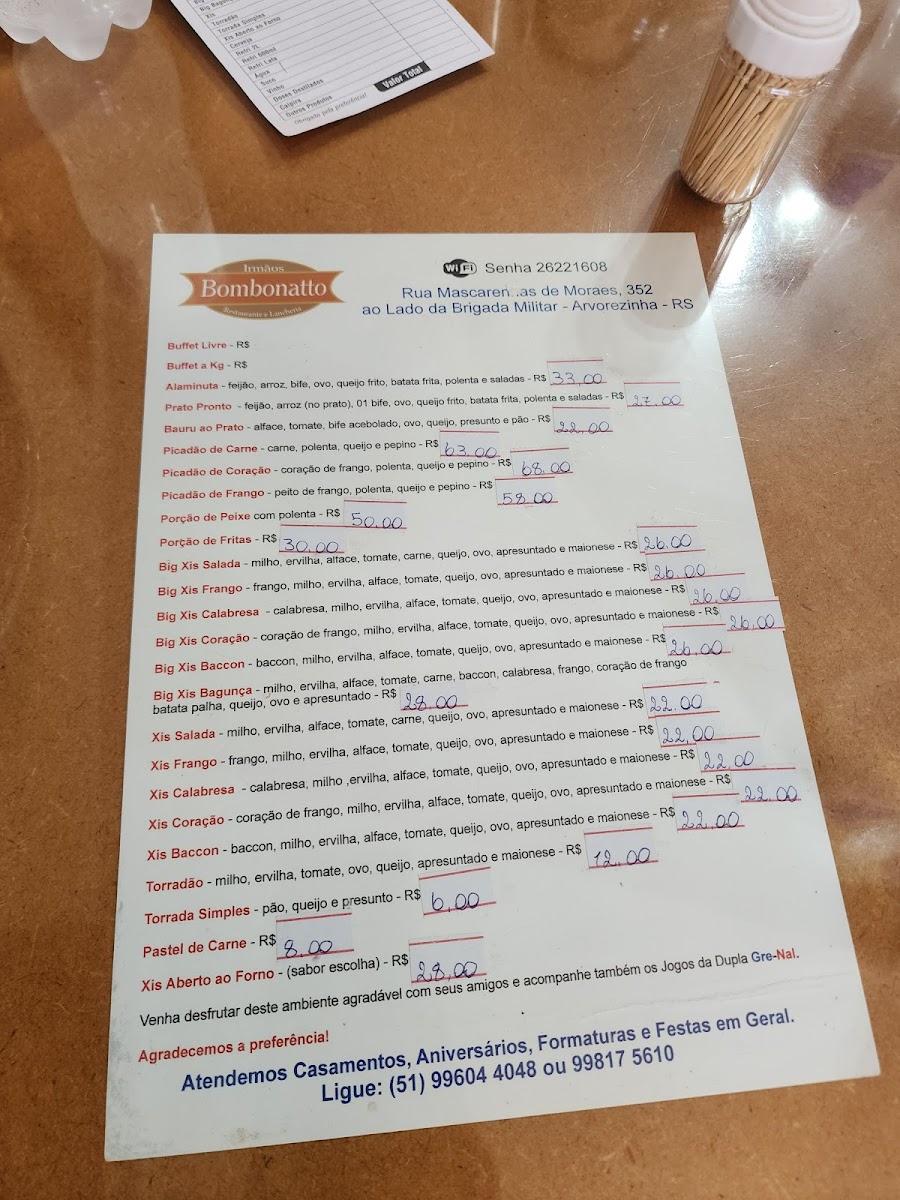 Big Bagunça
Xis
Torradão
Torrada Simples
Xis Aberto ao Forno
Cerveja
Refri 2L
Refri 600ml
Refri Lata
Água
Suco
Vinho
Doses Destilados
Caipira
Outros Produtos
Obrigado pela preferência!
Valor Total
Irmãos
Bombonatto
Restaurante e Lancheria
WiFi Senha 26221608
Rua Mascaren as de Moraes, 352
ao Lado da Brigada Militar - Arvorezinha - RS
Buffet Livre - R$
Buffet a Kg - R$
Alaminuta - feijão, arroz, bife, ovo, queijo frito, batata frita, polenta e saladas - R$ 33,00
Prato Pronto - feijão, arroz (no prato), 01 bife, ovo, queijo frito, batata frita, polenta e saladas - R$ 27.00
Bauru ao Prato - alface, tomate, bife acebolado, ovo, queijo, presunto e pão - R$ 22,00
Picadão de Carne - carne, polenta, queijo e pepino - R$ 63.00
Picadão de Coração - coração de frango, polenta, queijo e pepino - R$ 68.00
Picadão de Frango - peito de frango, polenta, queijo e pepino - R$ 58.00
Porção de Peixe com polenta - R$ 50.00
Porção de Fritas - R$ 30.00
Big Xis Salada - milho, ervilha, alface, tomate, carne, queijo, ovo, apresuntado e maionese - R$ 26.00
Big Xis Frango - frango, milho, ervilha, alface, tomate, queijo, ovo, apresuntado e maionese - R$ 26,00
Big Xis Calabresa - calabresa, milho, ervilha, alface, tomate, queijo, ovo, apresuntado e maionese - R$ 26,00
Big Xis Coração - coração de frango, milho, ervilha, alface, tomate, queijo, ovo, apresuntado e maionese - R$ 26.00
Big Xis Baccon - baccon, milho, ervilha, alface, tomate, queijo, ovo, apresuntado e maionese - R$ 26,00
Big Xis Bagunça - milho, ervilha, alface, tomate, carne, baccon, calabresa, frango, coração de frango
batata palha, queijo, ovo e apresuntado - R$ 28.00
Xis Salada - milho, ervilha, alface, tomate, carne, queijo, ovo, apresuntado e maionese - R$ 22.00
Xis Frango - frango, milho, ervilha, alface, tomate, queijo, ovo, apresuntado e maionese - R$ 22,00
Xis Calabresa - calabresa, milho ,ervilha, alface, tomate, queijo, ovo, apresuntado e maionese - R$ 22,00
Xis Coração - coração de frango, milho, ervilha, alface, tomate, queijo, ovo, apresuntado e maionese - R$ 22.00
Xis Baccon - baccon, milho, ervilha, alface, tomate, queijo, ovo, apresuntado e maionese - R$ 22,00
Torradão - milho, ervilha, tomate, ovo, queijo, apresuntado e maionese - R$ 12,00
Torrada Simples - pão, queijo e presunto - R$ 6,00
Pastel de Carne - R$ 8.00
Xis Aberto ao Forno - (sabor escolha) - R$ 28,00
Venha desfrutar deste ambiente agradável com seus amigos e acompanhe também os Jogos da Dupla Gre-Nal.
Agradecemos a preferência!
Atendemos Casamentos, Aniversários, Formaturas e Festas em Geral.
Ligue: (51) 99604 4048 ou 99817 5610